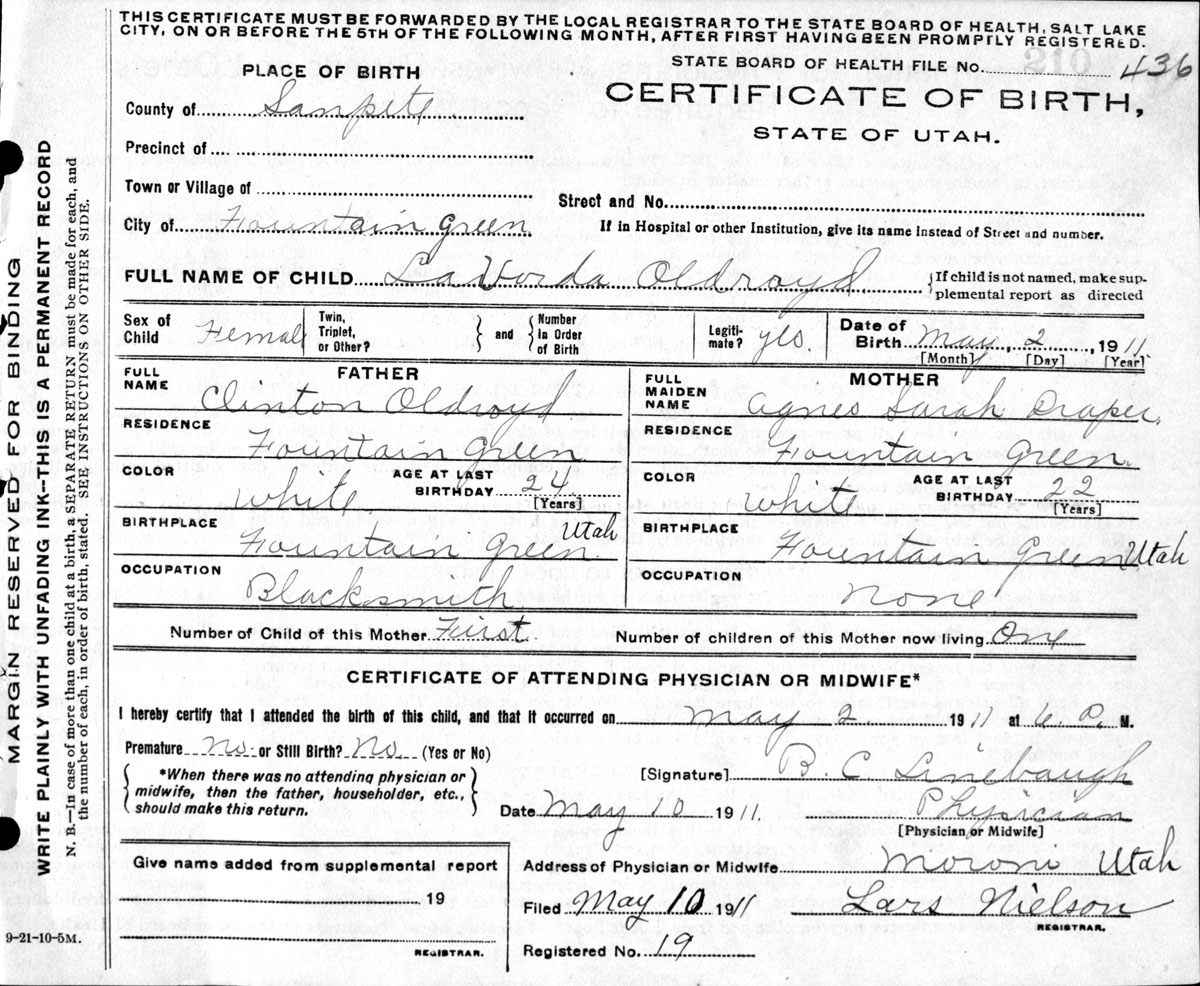 THIS CERTIFICATE MUST BE FORWARDED BY THE LOCAL REGISTRAR TO THE STATE BOARD OF HEALTH, SALT LAKE
CITY, ON OR BEFORE THE 5TH OF THE FOLLOWING MONTH, AFTER FIRST HAVING BEEN PROMPTLY REGISTERED.
STATE BOARD OF HEALTH FILE NO. 436
PLACE OF BIRTH
CERTIFICATE OF BIRTH,
STATE OF UTAH.
County of Sanpete
Precinct of
Town or Village of
Street and No.
City of Fountain Green
If in Hospital or other Institution, give its name instead of Street and number.
FULL NAME OF CHILD La Vorda Oldroyd
{If child is not named, make sup-
plemental report as directed
Sex of Child Female Twin, Triplet, or Other? } and { Number in Order of Birth Legiti-mate? yes. Date of Birth May 2, 1911
[Month] [Day] [Year]
FATHER MOTHER
FULL NAME Clinton Oldroyd FULL MAIDEN NAME Agnes Sarah Draper.
RESIDENCE Fountain Green RESIDENCE Fountain Green.
COLOR White. AGE AT LAST BIRTHDAY 24 [Years] COLOR White AGE AT LAST BIRTHDAY 22 [Years]
BIRTHPLACE Fountain Green. Utah BIRTHPLACE Fountain Green Utah
OCCUPATION Blacksmith. OCCUPATION None
Number of Child of this Mother First Number of children of this Mother now living One
CERTIFICATE OF ATTENDING PHYSICIAN OR MIDWIFE*
I hereby certify that I attended the birth of this child, and that it occurred on May 2 1911 at 6 P. M.
Premature No. or Still Birth? No. (Yes or No)
{ *When there was no attending physician or
midwife, then the father, householder, etc.,
should make this return. }
[Signature] B. C. Linebaugh
Date May 10 1911. Physician
[Physician or Midwife]
Give name added from supplemental report
19
REGISTRAR.
Address of Physician or Midwife Moroni Utah
Filed May 10 1911 Lars Nielson
REGISTRAR.
Registered No. 19
9-21-10-5M.
MARGIN RESERVED FOR BINDING
WRITE PLAINLY WITH UNFADING INK—THIS IS A PERMANENT RECORD
N. B.—In case of more than one child at a birth, a SEPARATE RETURN must be made for each, and
the number of each, in order of birth, stated. SEE INSTRUCTIONS ON OTHER SIDE.